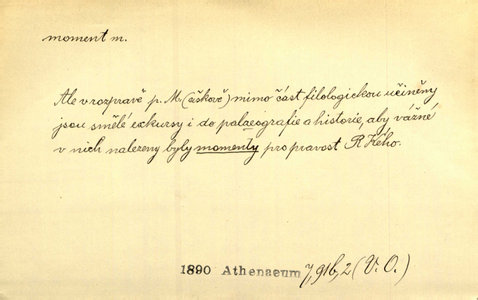 moment m.
Ale v rozpravě p. M (aškově) mimo část filologickou učiněny
jsou smělé exkursy i do palaeografie a historie, aby vážné
v nich nalezeny byly momenty pro pravost RKého.
1890 Athenaeum 7, 91b, 2 (V. O.)